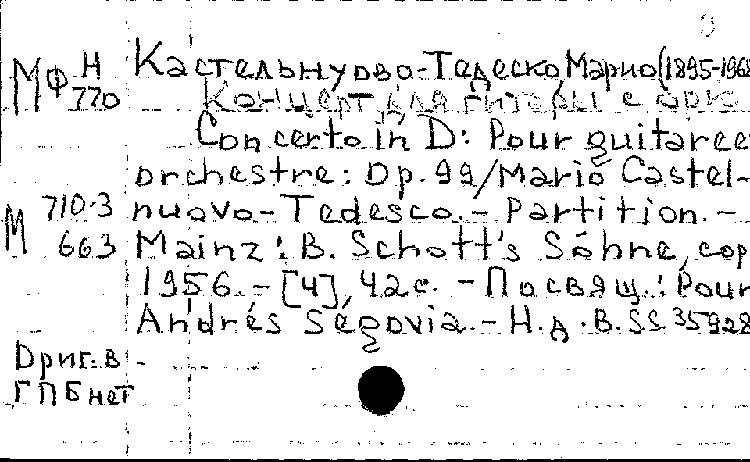 МФ Н 770 Кастельнуово-Тедеско, Марио (1895-1968
Концерт для гитары с орк.
Concerto in D: Pour guitare e
orchestre: Op. 99/Mario Castel-
М 710-3 nuovo-Tedesco.- Partition.-
663 Mainz: B. Schott's Söhne, cop
1956.-[4], 42c. -Посвящ.: Pour
Andrés Ségovia.- Н.д. B.SS 35928
Ориг. в
ГПБ нет